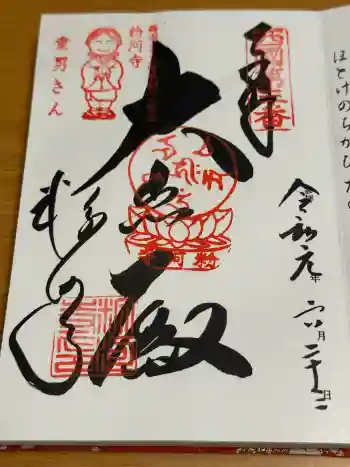 ほとけのちかひた
奉拝
西国第三番
令和元年六月
大悲殿
粉河寺
粉河寺
童男さん